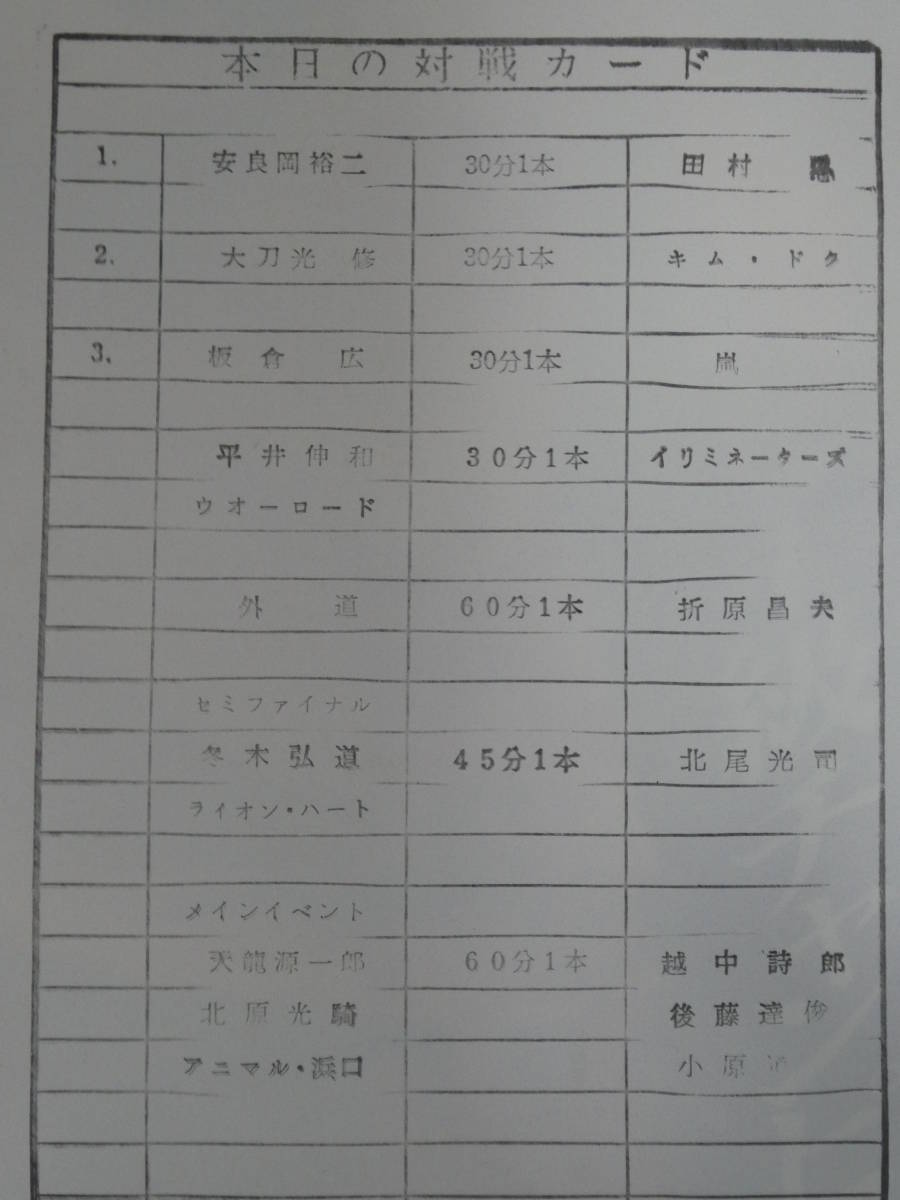 本日の対戦カード
1. 安良岡裕二 30分1本 田村
2. 大刀光 修 30分1本 キム・ドク
3. 板倉 広 30分1本 嵐
平井伸和 30分1本 イリミネーターズ
ウオーロード
外 道 60分1本 折原昌夫
セミファイナル
冬木弘道 45分1本 北尾光司
ライオン・ハート
メインイベント
天龍源一郎 60分1本 越中詩郎
北原光騎 後藤達俊
アニマル・浜口 小原